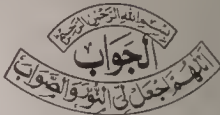 بسم الله الرحمن الرحیم
الجواب
اللهم جعل لی النور والصواب